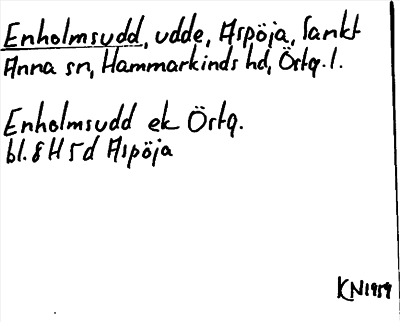 Enholmsudd, udde, Aspöja, Sankt
Anna sn, Hammarkinds hd, Östg. l.
Enholmsudd ek Östg.
bl. 8 H 5 d Aspöja
KN1959